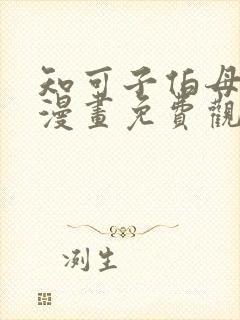 知可子伯母
漫畫免費觀
冽生